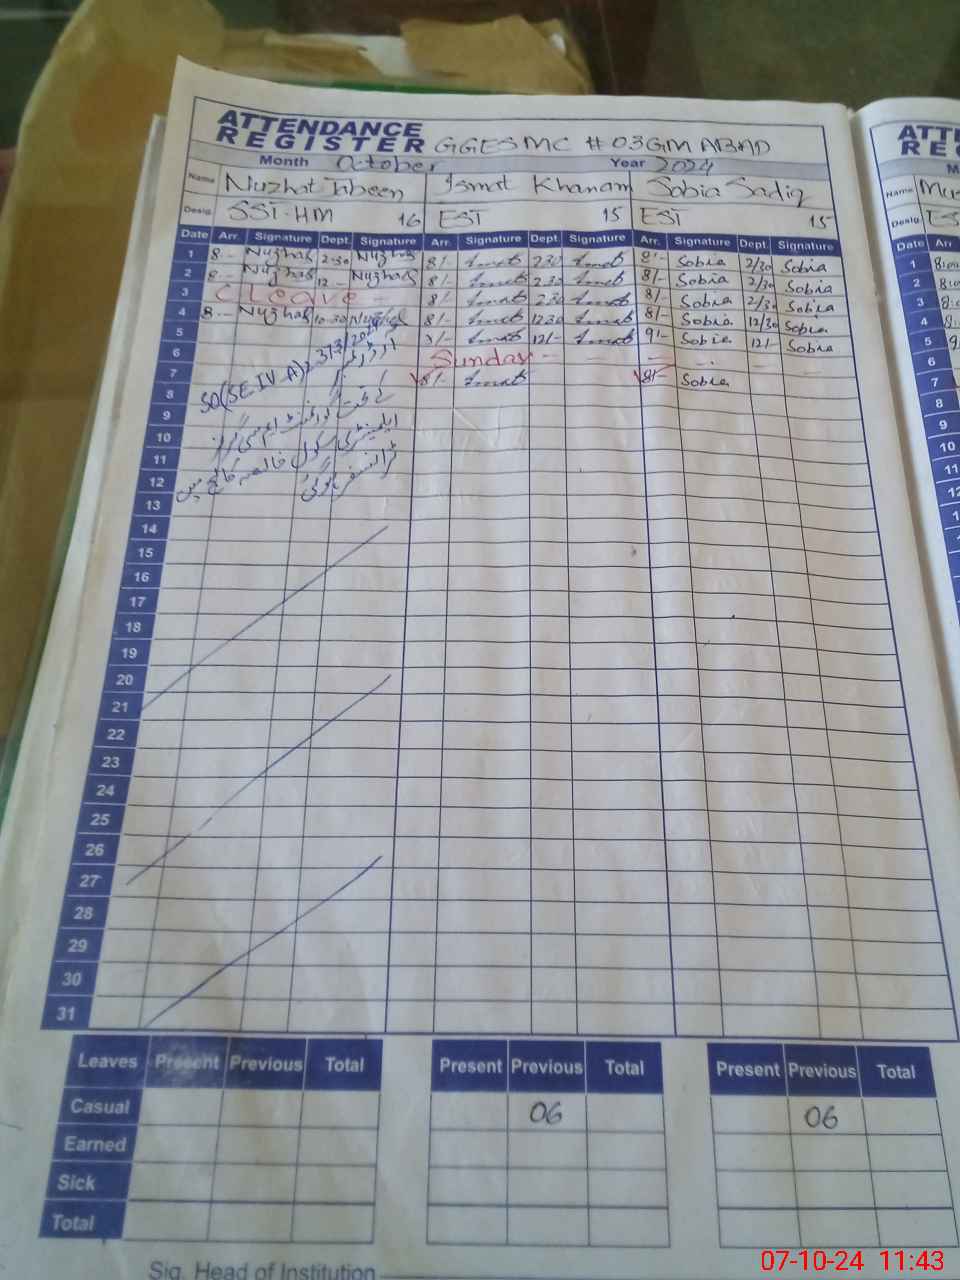 ATTENDANCE
REGISTER GGESMC #03GM ABAD
Month October Year 2024
Name Nuzhat Jabeen Ismat Khanam Sobia Sadiq
Desig. SST-HM 16 EST 15 EST 15
Date Arr. Signature Dept. Signature Arr. Signature Dept. Signature Arr. Signature Dept. Signature
1 8-- Nuzhat 2-30 Nuzhat 8/- Ismat 230 Ismat 8/- Sobia 2/30 Sobia
2 8-- Nuzhat 12-- Nuzhat 8/- Ismat 230 Ismat 8/- Sobia 2/30 Sobia
3 C Leave - 8/- Ismat 230 Ismat 8/- Sobia 2/30 Sobia
4 8-- Nuzhat 10-30 Nuzhat 8/- Ismat 1230 Ismat 8/- Sobia 12/30 Sobia
5 Ismat 12/- Ismat 9/- Sobia 12/- Sobia
6 Sunday
7 8/- Ismat 8/- Sobia
آرڈر نمبر SO(SE-IV-A)2-373/2024
کے تحت گورنمنٹ ایم سی گرلز
ایلیمنٹری سکول خالصہ کالج میں
ٹرانسفر ہو گئی
8
9
10
11
12
13
14
15
16
17
18
19
20
21
22
23
24
25
26
27
28
29
30
31
Leaves Present Previous Total Present Previous Total Present Previous Total
Casual 06 06
Earned
Sick
Total
Sig. Head of Institution
ATT
RE
Name Mus
Desig. ES
Date Arr
1 8:00
2 8:00
3 8:0
4 8:
5
6
7
8
9
10
11
12
07-10-24 11:43